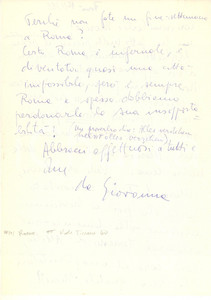 Perché non fate un fine-settimana
a Roma?
Certo Roma è infernale, è
diventata quasi una città
impossibile, però è sempre
Roma e spesso dobbiamo
perdonarle la sua insopporta
bilità!
Abbracci affettuosi a tutti e
due
da Giovanna